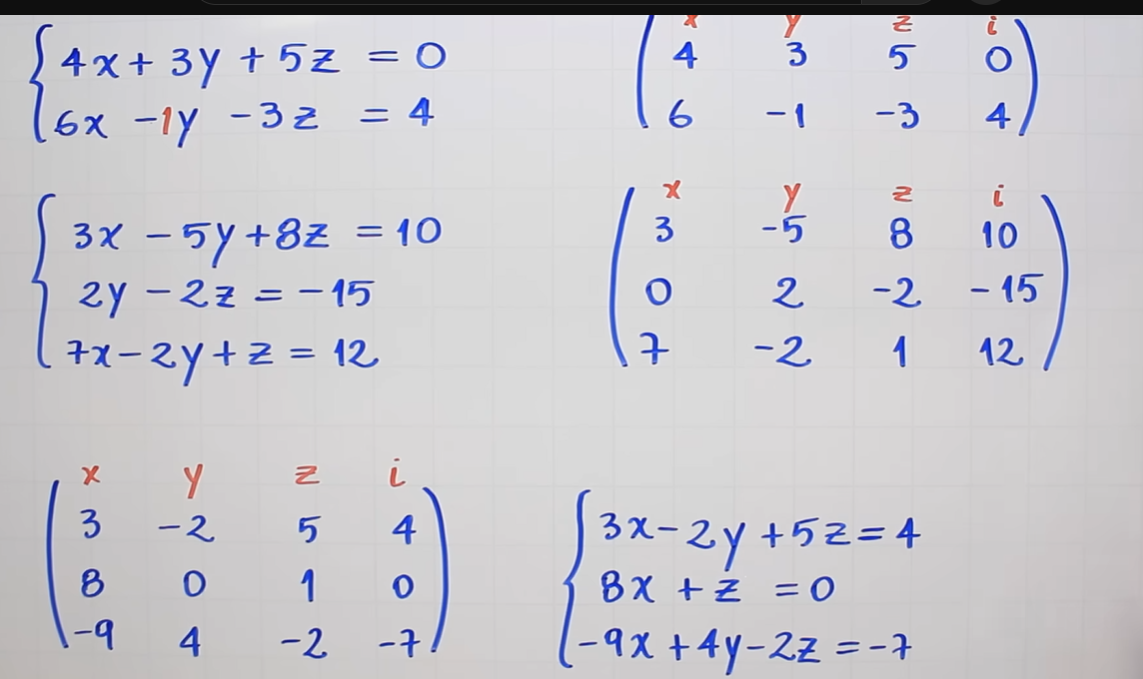 4x + 3y + 5z = 0
6x - 1y - 3z = 4
x y z i
4 3 5 0
6 -1 -3 4
3x - 5y + 8z = 10
2y - 2z = -15
7x - 2y + z = 12
x y z i
3 -5 8 10
0 2 -2 -15
7 -2 1 12
x y z i
3 -2 5 4
8 0 1 0
-9 4 -2 -7
3x - 2y + 5z = 4
8x + z = 0
-9x + 4y - 2z = -7